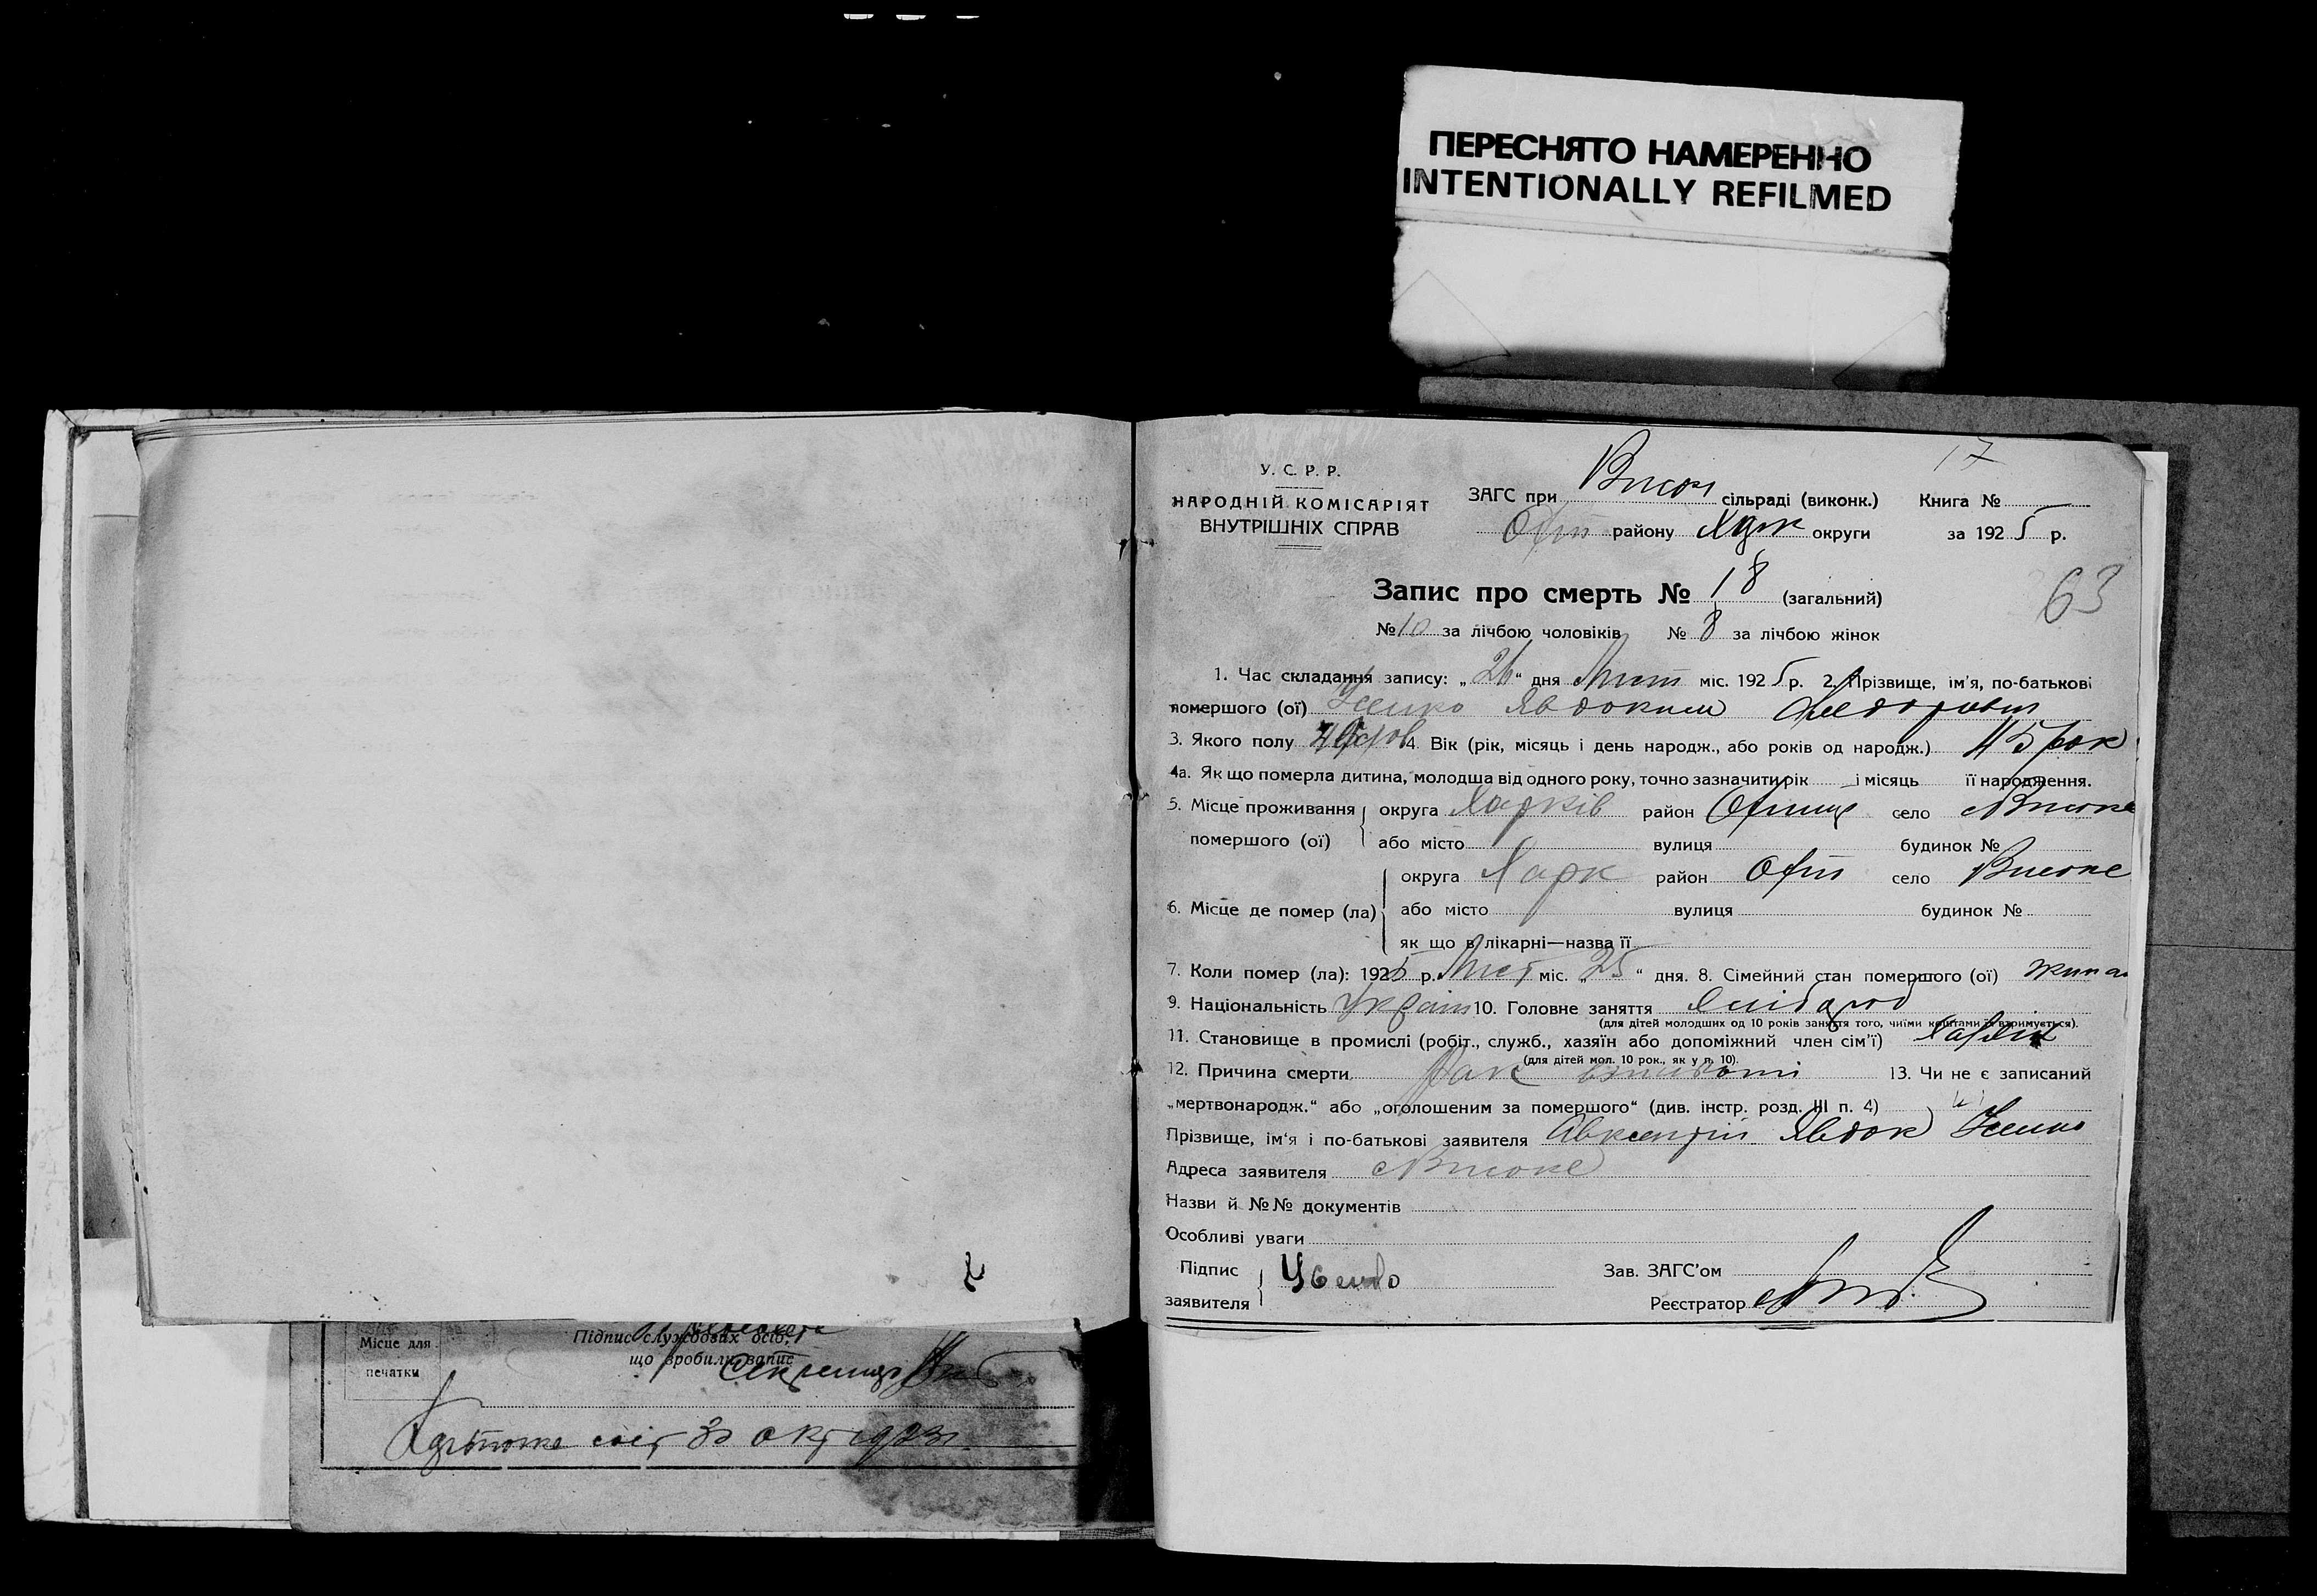 ПЕРЕСНЯТО НАМЕРЕННО
INTENTIONALLY REFILMED
17
У. С. Р. Р.
НАРОДНІЙ КОМІСАРІЯТ
ВНУТРІШНІХ СПРАВ
ЗАГС при Височ сільраді (виконк.) Книга №
району Харк округи за 1925 р.
63
Запис про смерть № 18 (загальний)
№ 10 за лічбою чоловіків № 8 за лічбою жінок
1. Час складання запису: „26“ дня Лист міс. 1925 р. 2. Прізвище, ім'я, по-батькові
помершого (ої) Усенко Явдоким Федорович
3. Якого полу 4. Вік (рік, місяць і день народж., або років од народж.) 45 рок
4а. Як що померла дитина, молодша від одного року, точно зазначити рік і місяць її народження.
5. Місце проживання помершого (ої) округа Харків район село Високе
або місто вулиця будинок №
6. Місце де помер (ла) округа Харк район село Високе
або місто вулиця будинок №
як що в лікарні—назва її
7. Коли помер (ла): 1925 р. Лист міс. „25“ дня. 8. Сімейний стан помершого (ої)
9. Національність Україн 10. Головне заняття Хлібороб
(для дітей молодших од 10 років заняття того, чиїми коштами її втримується).
11. Становище в промислі (робіт., служб., хазяїн або допоміжний член сім'ї) Хазяїн
(для дітей мол. 10 рок., як у п. 10).
12. Причина смерти Рак 13. Чи не є записаний
„мертвонародж.“ або „оголошеним за помершого“ (див. інстр. розд. III п. 4)
Прізвище, ім'я і по-батькові заявителя Авксентій Явдок Усенко
Адреса заявителя Високе
Назви й №№ документів
Особливі уваги
Підпис заявителя Усенко
Зав. ЗАГС'ом
Реєстратор
Місце для печатки
Підпис службових осіб,
що зробили запис
30 окт 1923